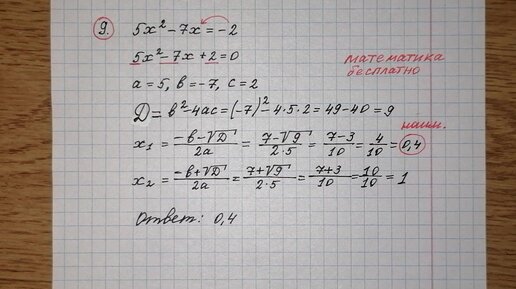 9. 5x² - 7x = -2
5x² - 7x + 2 = 0
математика
бесплатно
a = 5, b = -7, c = 2
D = b² - 4ac = (-7)² - 4·5·2 = 49 - 40 = 9
наим.
x₁ = (-b - √D)/2a = (7 - √9)/2·5 = (7 - 3)/10 = 4/10 = 0,4
x₂ = (-b + √D)/2a = (7 + √9)/2·5 = (7 + 3)/10 = 10/10 = 1
Ответ: 0,4